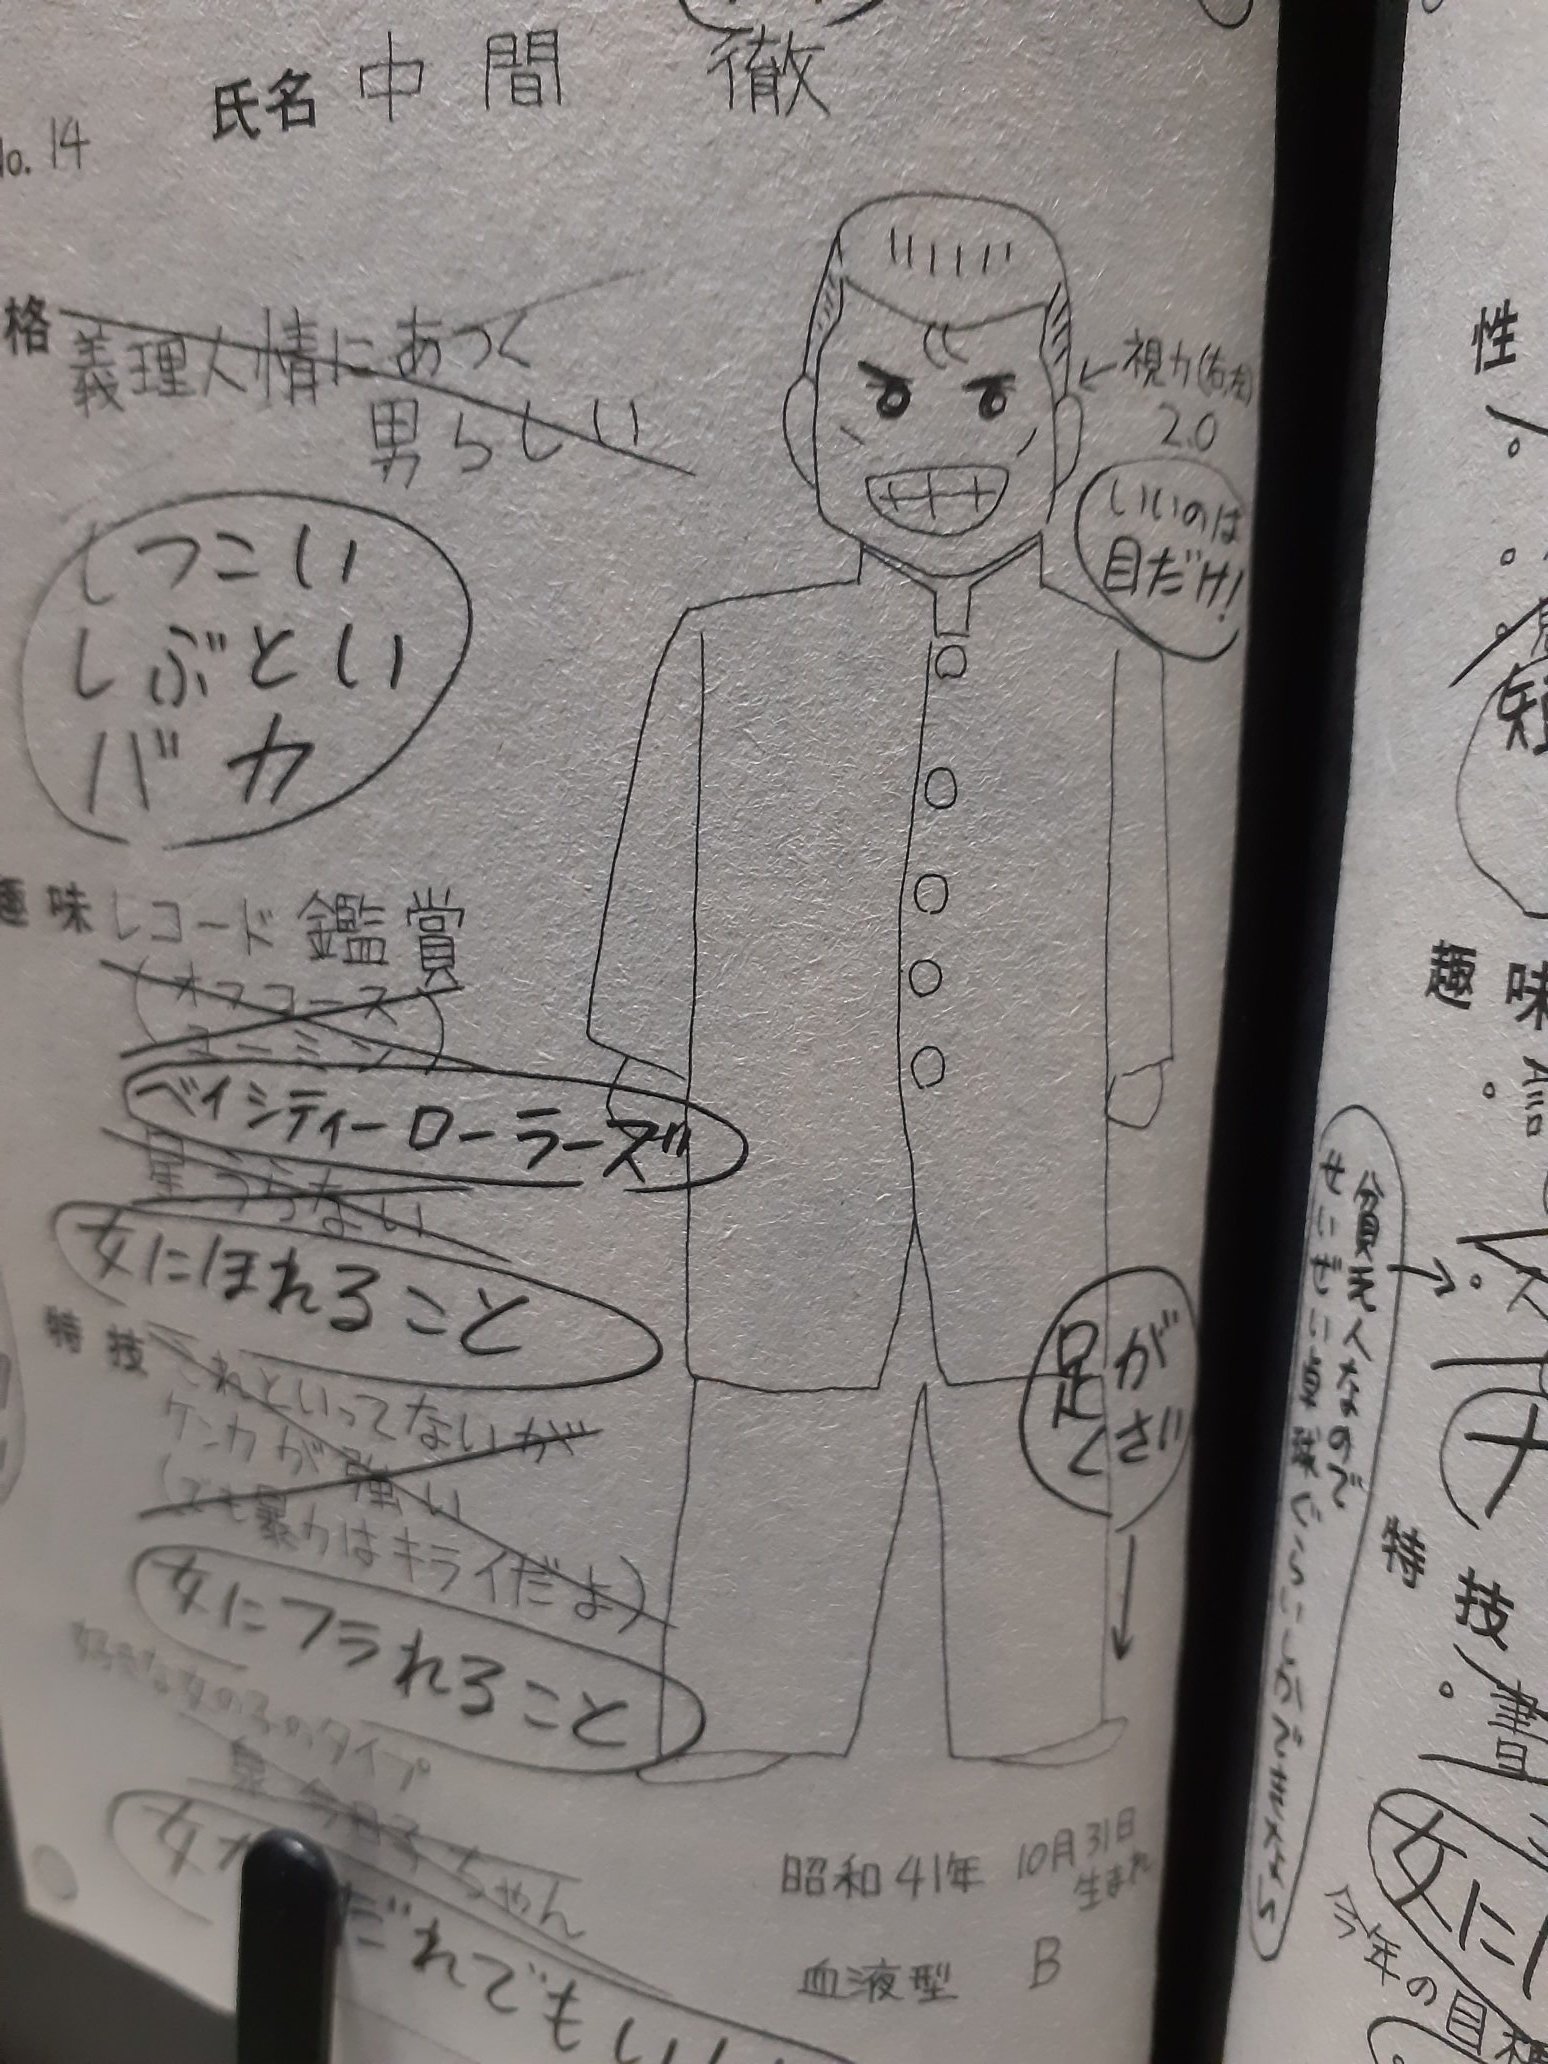 No. 14
氏名 中間 徹
格 義理人情にあつく
男らしい
しつこい
しぶとい
バカ
視力(右左)
2.0
いいのは
目だけ!
趣味 レコード鑑賞
(オフコース
ユーミン)
ベイシティーローラーズ
星うらない
女にほれること
特技 これといってないが
ケンカが強い
(でも暴力はキライだよ)
女にフラれること
好きな女の子のタイプ
今日子ちゃん
だれでもいい
足が
くさい
昭和41年 10月31日
生まれ
血液型 B
性
短
趣味
貧乏人なので
せいぜい卓球ぐらいしかできない
特技
女に
今年の目標